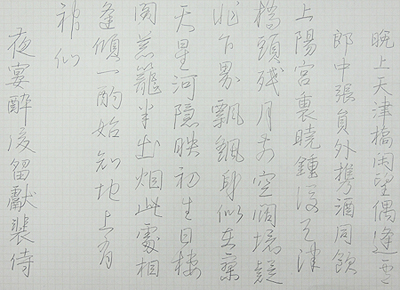 晚上天津橋閑望偶逢盧
郎中張員外携酒同傾
上陽宮裏曉鍾後天津
橋頭殘月前空闊境疑
非下界飄飄身似在寥
天星河隱映初生日樓
閣葱蘢半出烟此處相
逢傾一酌始知地上有
神仙
夜宴醉後留獻裴侍